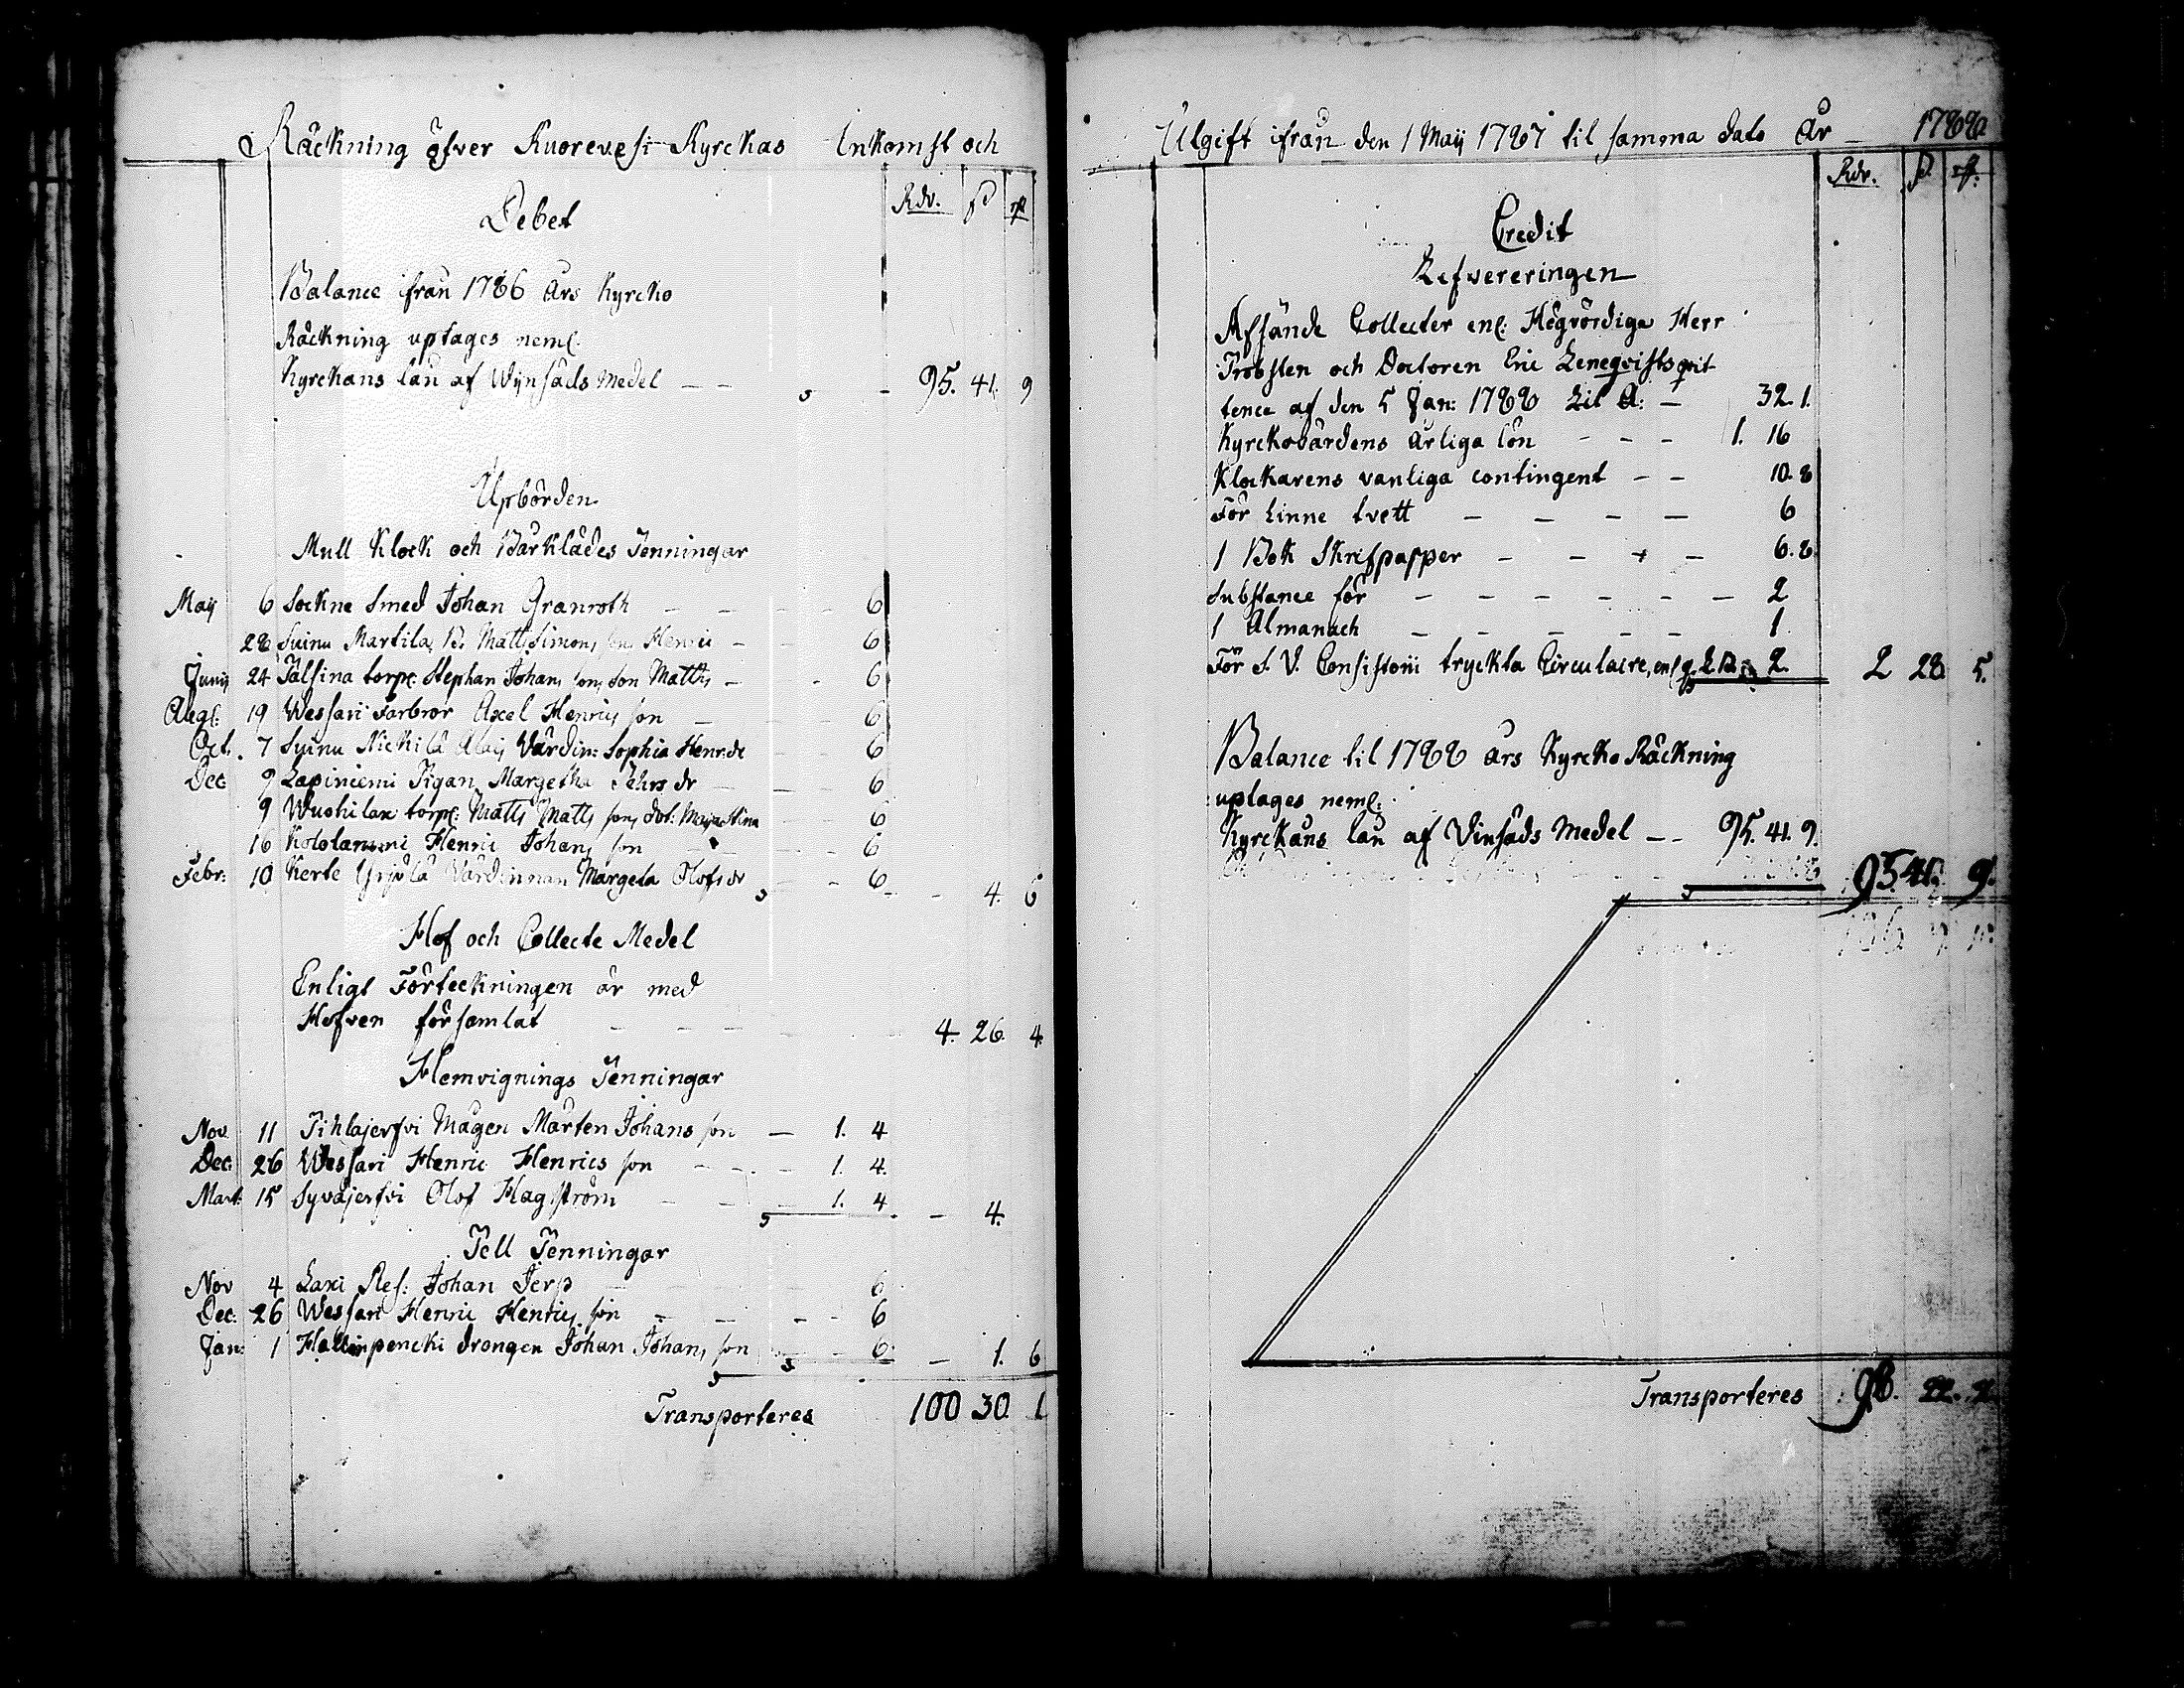 Räckning öfver Kuorevesi Kyrckas Inkomst och
Rdr. ß rst
Debet
Balance ifrån 1786 års Kyrcko
Räckning uptages neml.
Kyrckans lån af Wijnsäds Medel — — 95. 41. 9
Upbörden
Mull Klock och Bårklädes Penningar
Maij 6 Sockne Smed Johan Granroth — — 6
28 Suinu Martila B. Matts Simons son Henric — 6
Junij 24 torp. Stephan Johans sons son Matths — 6
Aug. 19 Wessari Farbror Axel Henrics son — 6
Oct. 7 Suinu Nickilä Värdin: Sophia Henr: dr 6
Dec 9 Lapiniemi Pigan Margetha dr — 6
9 torp. Matts Matts sons dot: Maja Stina — 6
16 Henric Johans son — 6
Febr: 10 Kerte Yrjölä Värdinnan Margeta Olofs dr — 6 — 4. 6
Hof och Collecte Medel
Enligt Förteckningen är med
Hofven församlat — — 4. 26. 4
Hemvignings Penningar
Nov. 11 Pihlajerfvi Mågen Mårten Johans son — 1. 4
Dec: 26 Wessari Henric Henrics son — 1. 4.
Mart: 15 Syväjerfvi Olof Hagström — 1. 4 — 4.
Pell Penningar
Nov 4 Laxi Johan Jerp 6
Dec: 26 Wessari Henric Henrics son — — 6
Jan: 1 Hallinpencki drängen Johan Johans son — 6. — 1. 6
Transporteres 100 30. 1
Utgift ifrån den 1 Maij 1787 til samma dato År — 1788
Rdr. ß. rst:
Credit
Lefvereringen
Afsände Collecter enl: Högvördige Herr
Probsten och Doctoren Eric Leneqvists qvit-
tence af den 5 Jan: 1788 Lit A: — 32. 1.
Kyrckovärdens årliga lön — — — 1. 16
Klockarens vanliga contingent — — 10. 8
För Linne tvett — — — — 6
1 Bok Skrifpapper — — — 6. 8.
Substance för — — — — — — 2
1 Almanach — — — — — 1
För S. V. Consistorii tryckta Circulaire, enl. q. L. B. 2. 2 28 5.
Balance til 1788 års Kyrcko Räckning
uptages neml:
Kyrckans lån af Vinsäds Medel — — 95. 41. 9.
95 41. 9.
Transporteres 98. 22. 2